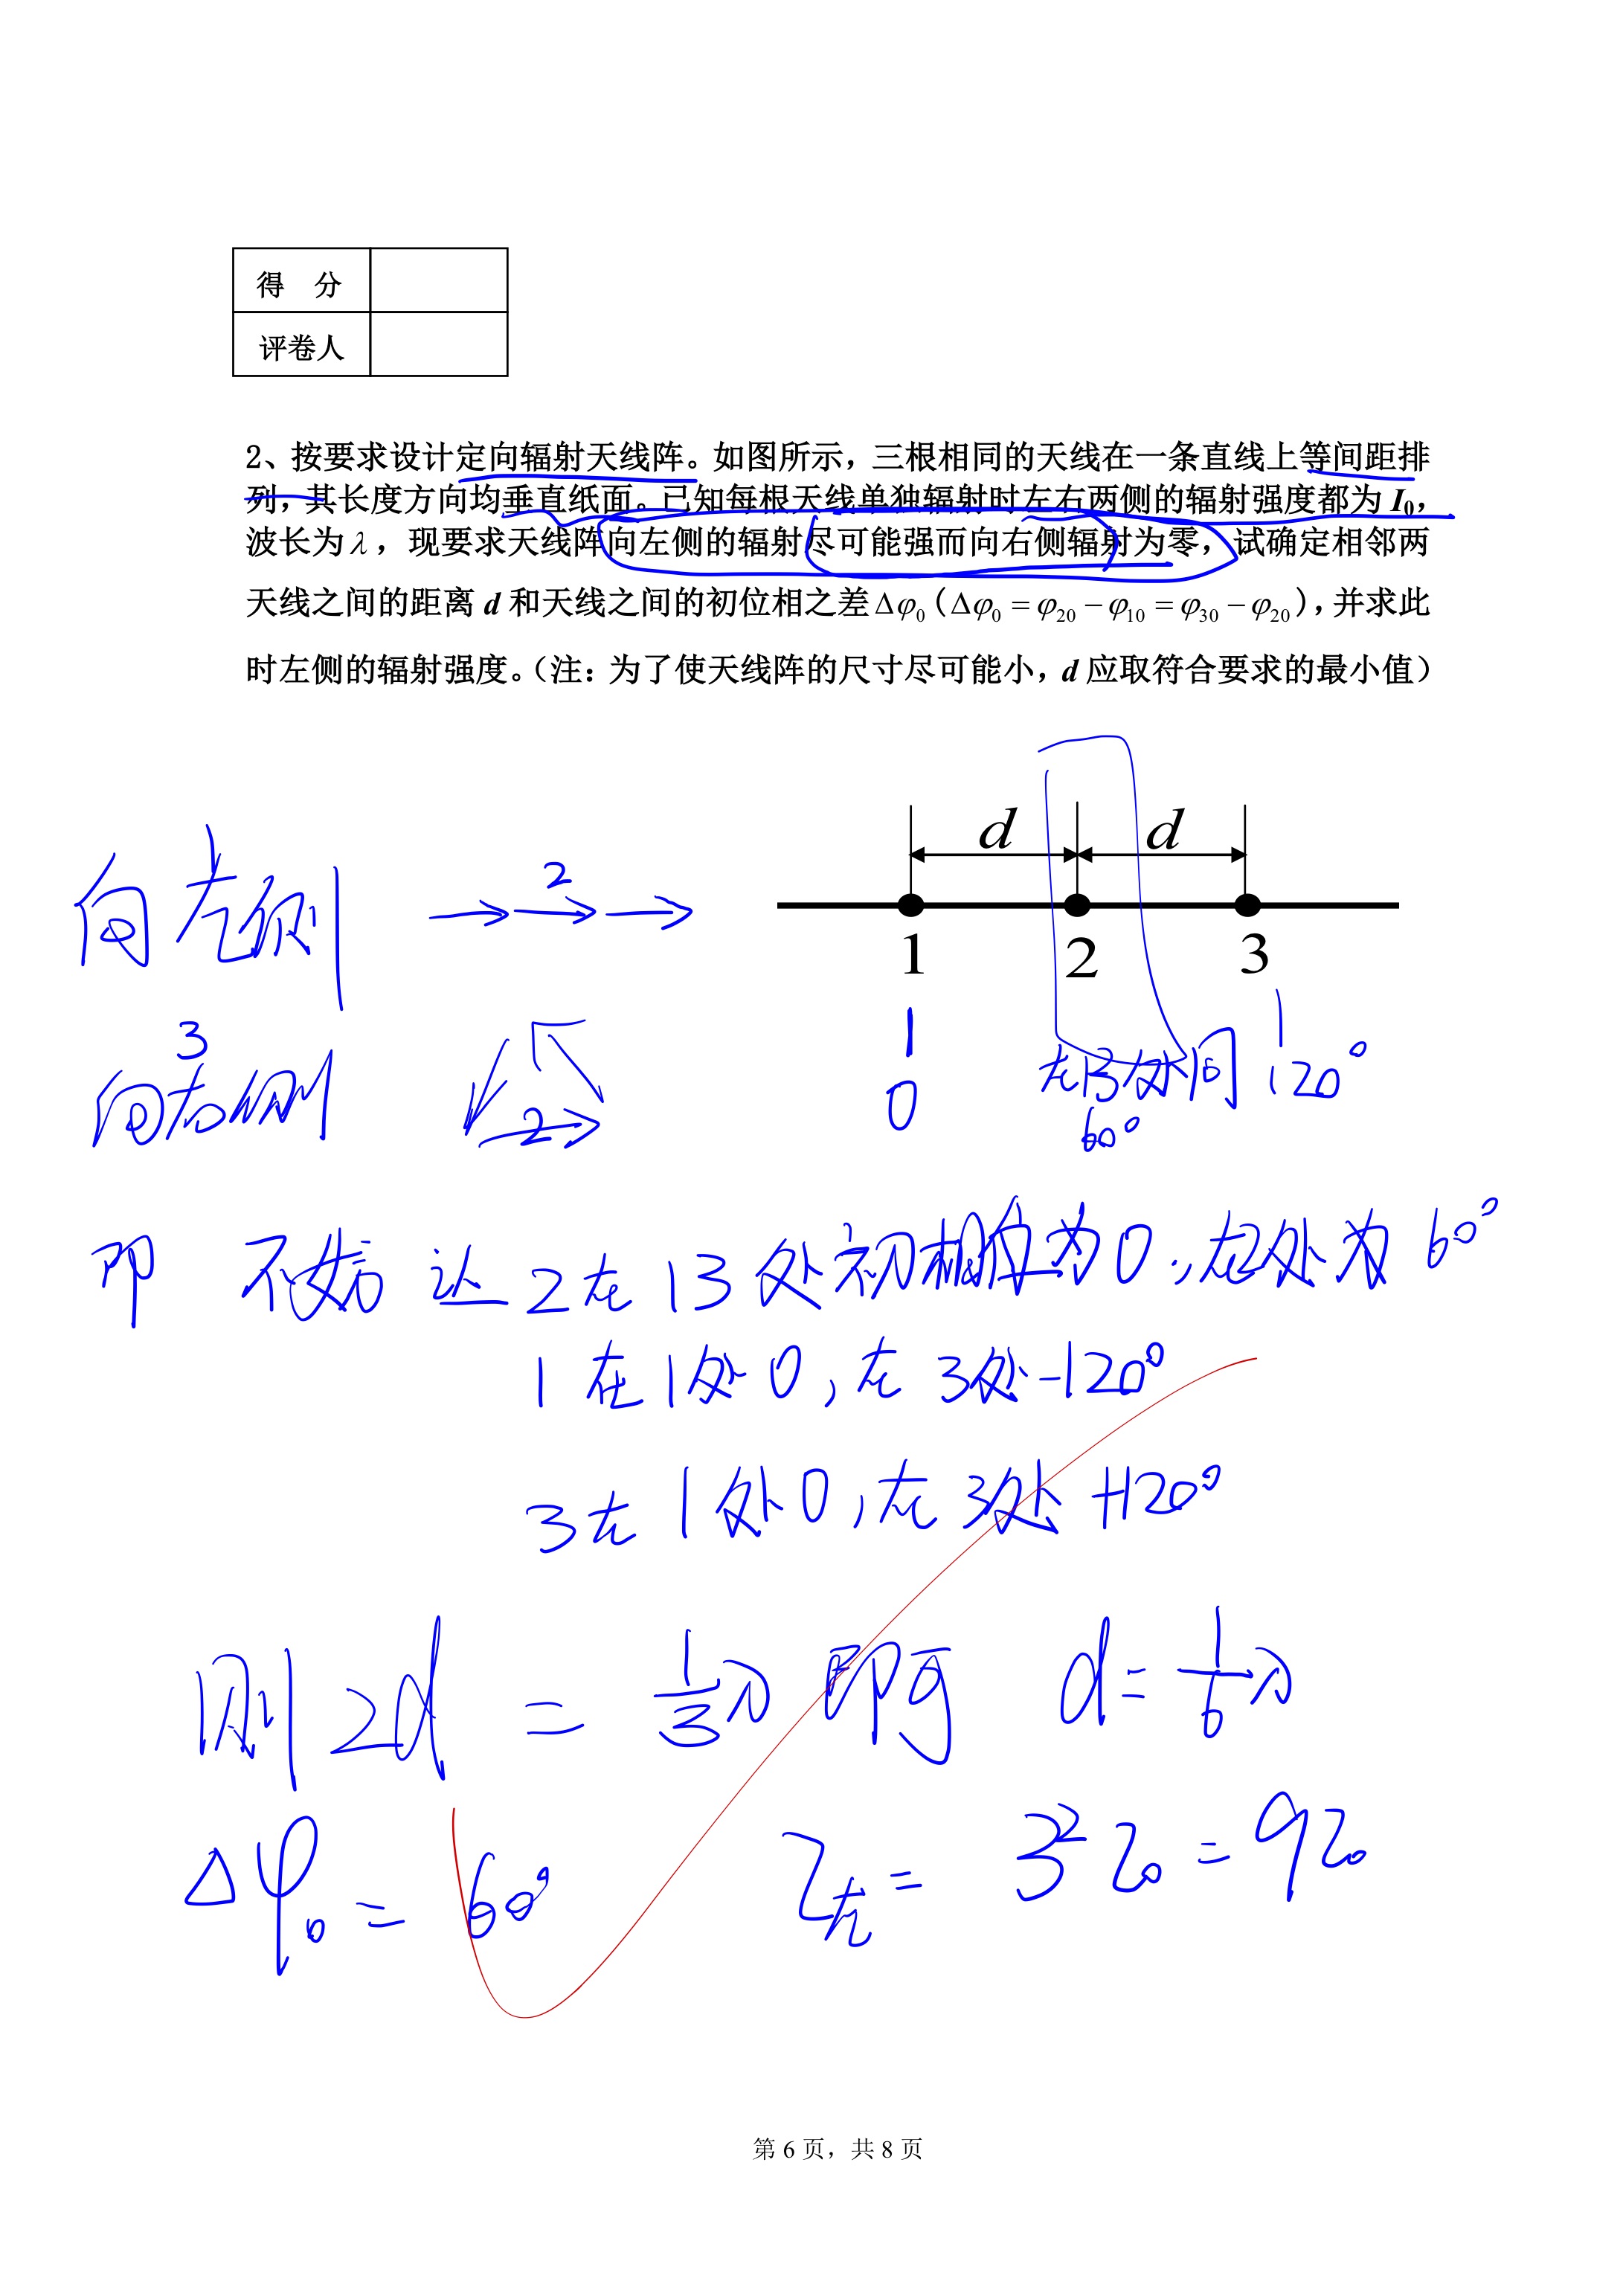 得 分
评卷人
2、按要求设计定向辐射天线阵。如图所示，三根相同的天线在一条直线上等间距排
列，其长度方向均垂直纸面。已知每根天线单独辐射时左右两侧的辐射强度都为 I₀，
波长为 λ，现要求天线阵向左侧的辐射尽可能强而向右侧辐射为零，试确定相邻两
天线之间的距离 d 和天线之间的初位相之差 Δφ₀（Δφ₀ = φ₂₀ − φ₁₀ = φ₃₀ − φ₂₀），并求此
时左侧的辐射强度。（注：为了使天线阵的尺寸尽可能小，d 应取符合要求的最小值）
d d
向左侧 2
1 2 3
向右侧 3 2
0 在13处间 120°
60°
即 不妨 2在13处初相位为0，在2处为60°
1 在1处0，在 3处-120°
3在 1处0，在 3处 +120°
则 2d = 1/3 λ 即可 d = 1/6 λ
Δφ₀ = 60° I左 = 3² I₀ = 9I₀
第 6 页，共 8 页